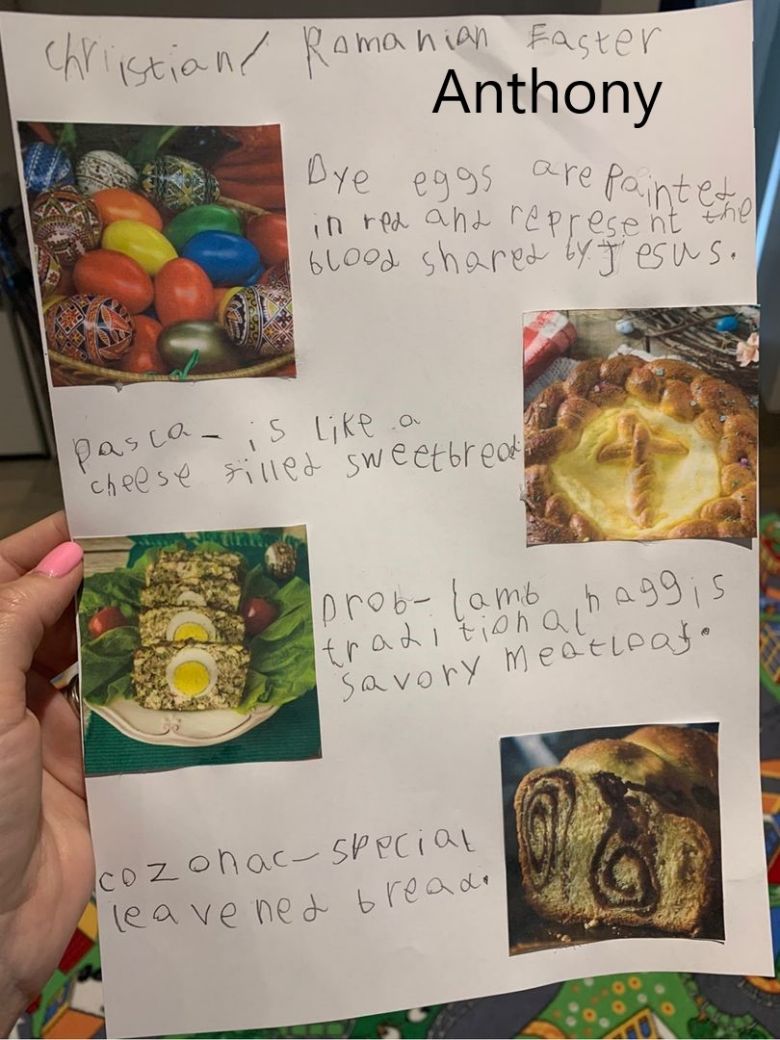 Chriistian/ Romanian Easter
Anthony
Dye eggs are painted
in red and represent the
blood shared by Jesus.
pasca- is like a
cheese filled sweetbread
Drob- lamb haggis
traditional
savory meatloaf.
cozonac- special
leavened bread.